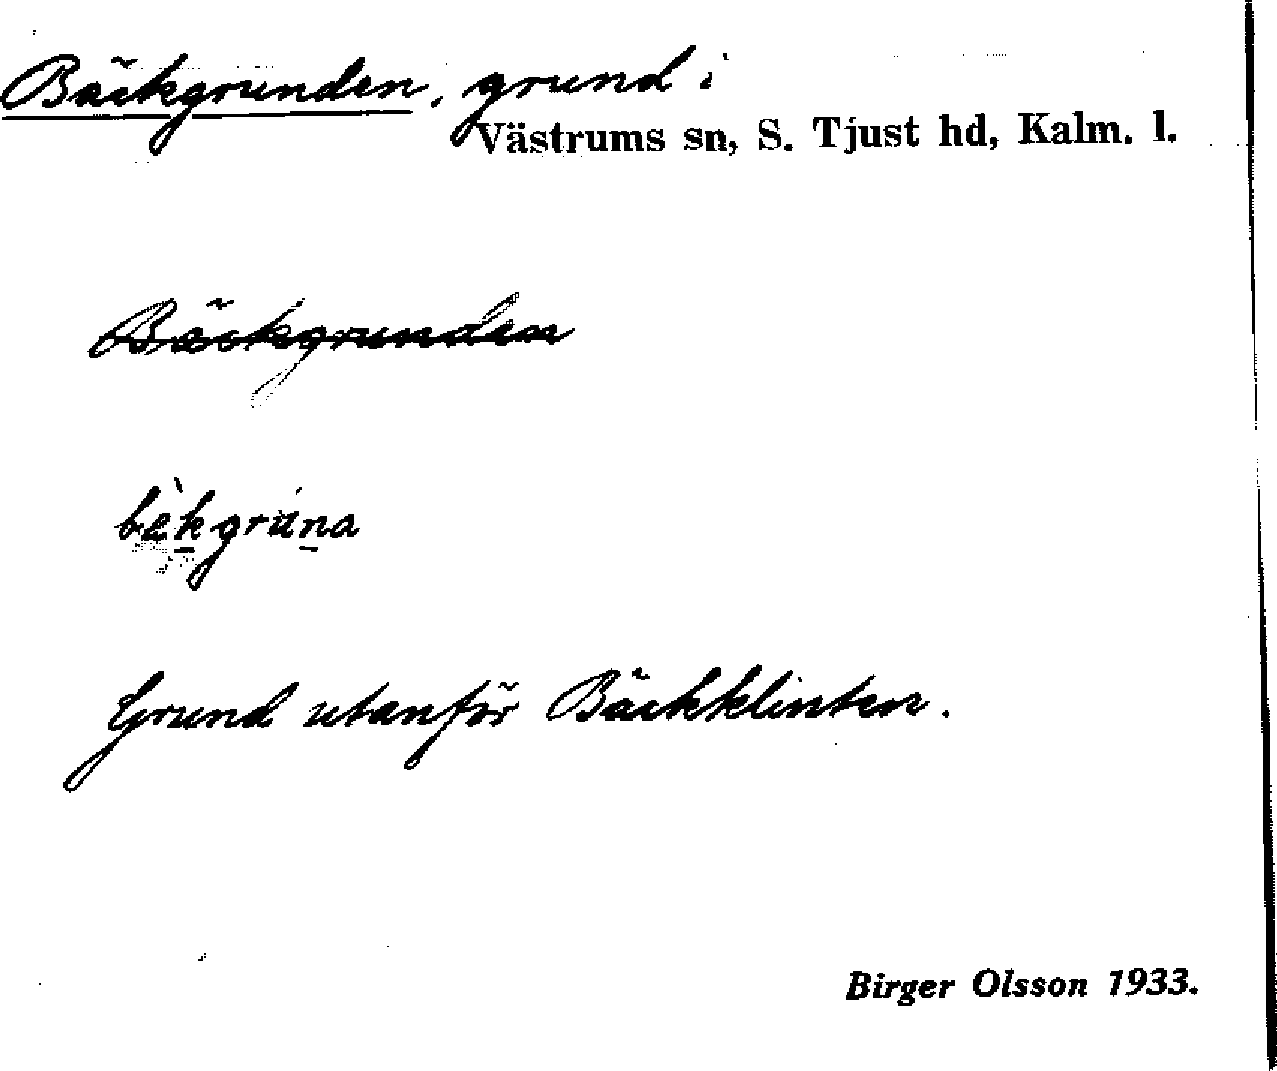 Bäckgrunden, grund i
Västrums sn, S. Tjust hd, Kalm. l.
Bäckgrunden
bèkgruna
Grund utanför Bäckklinten.
Birger Olsson 1933.